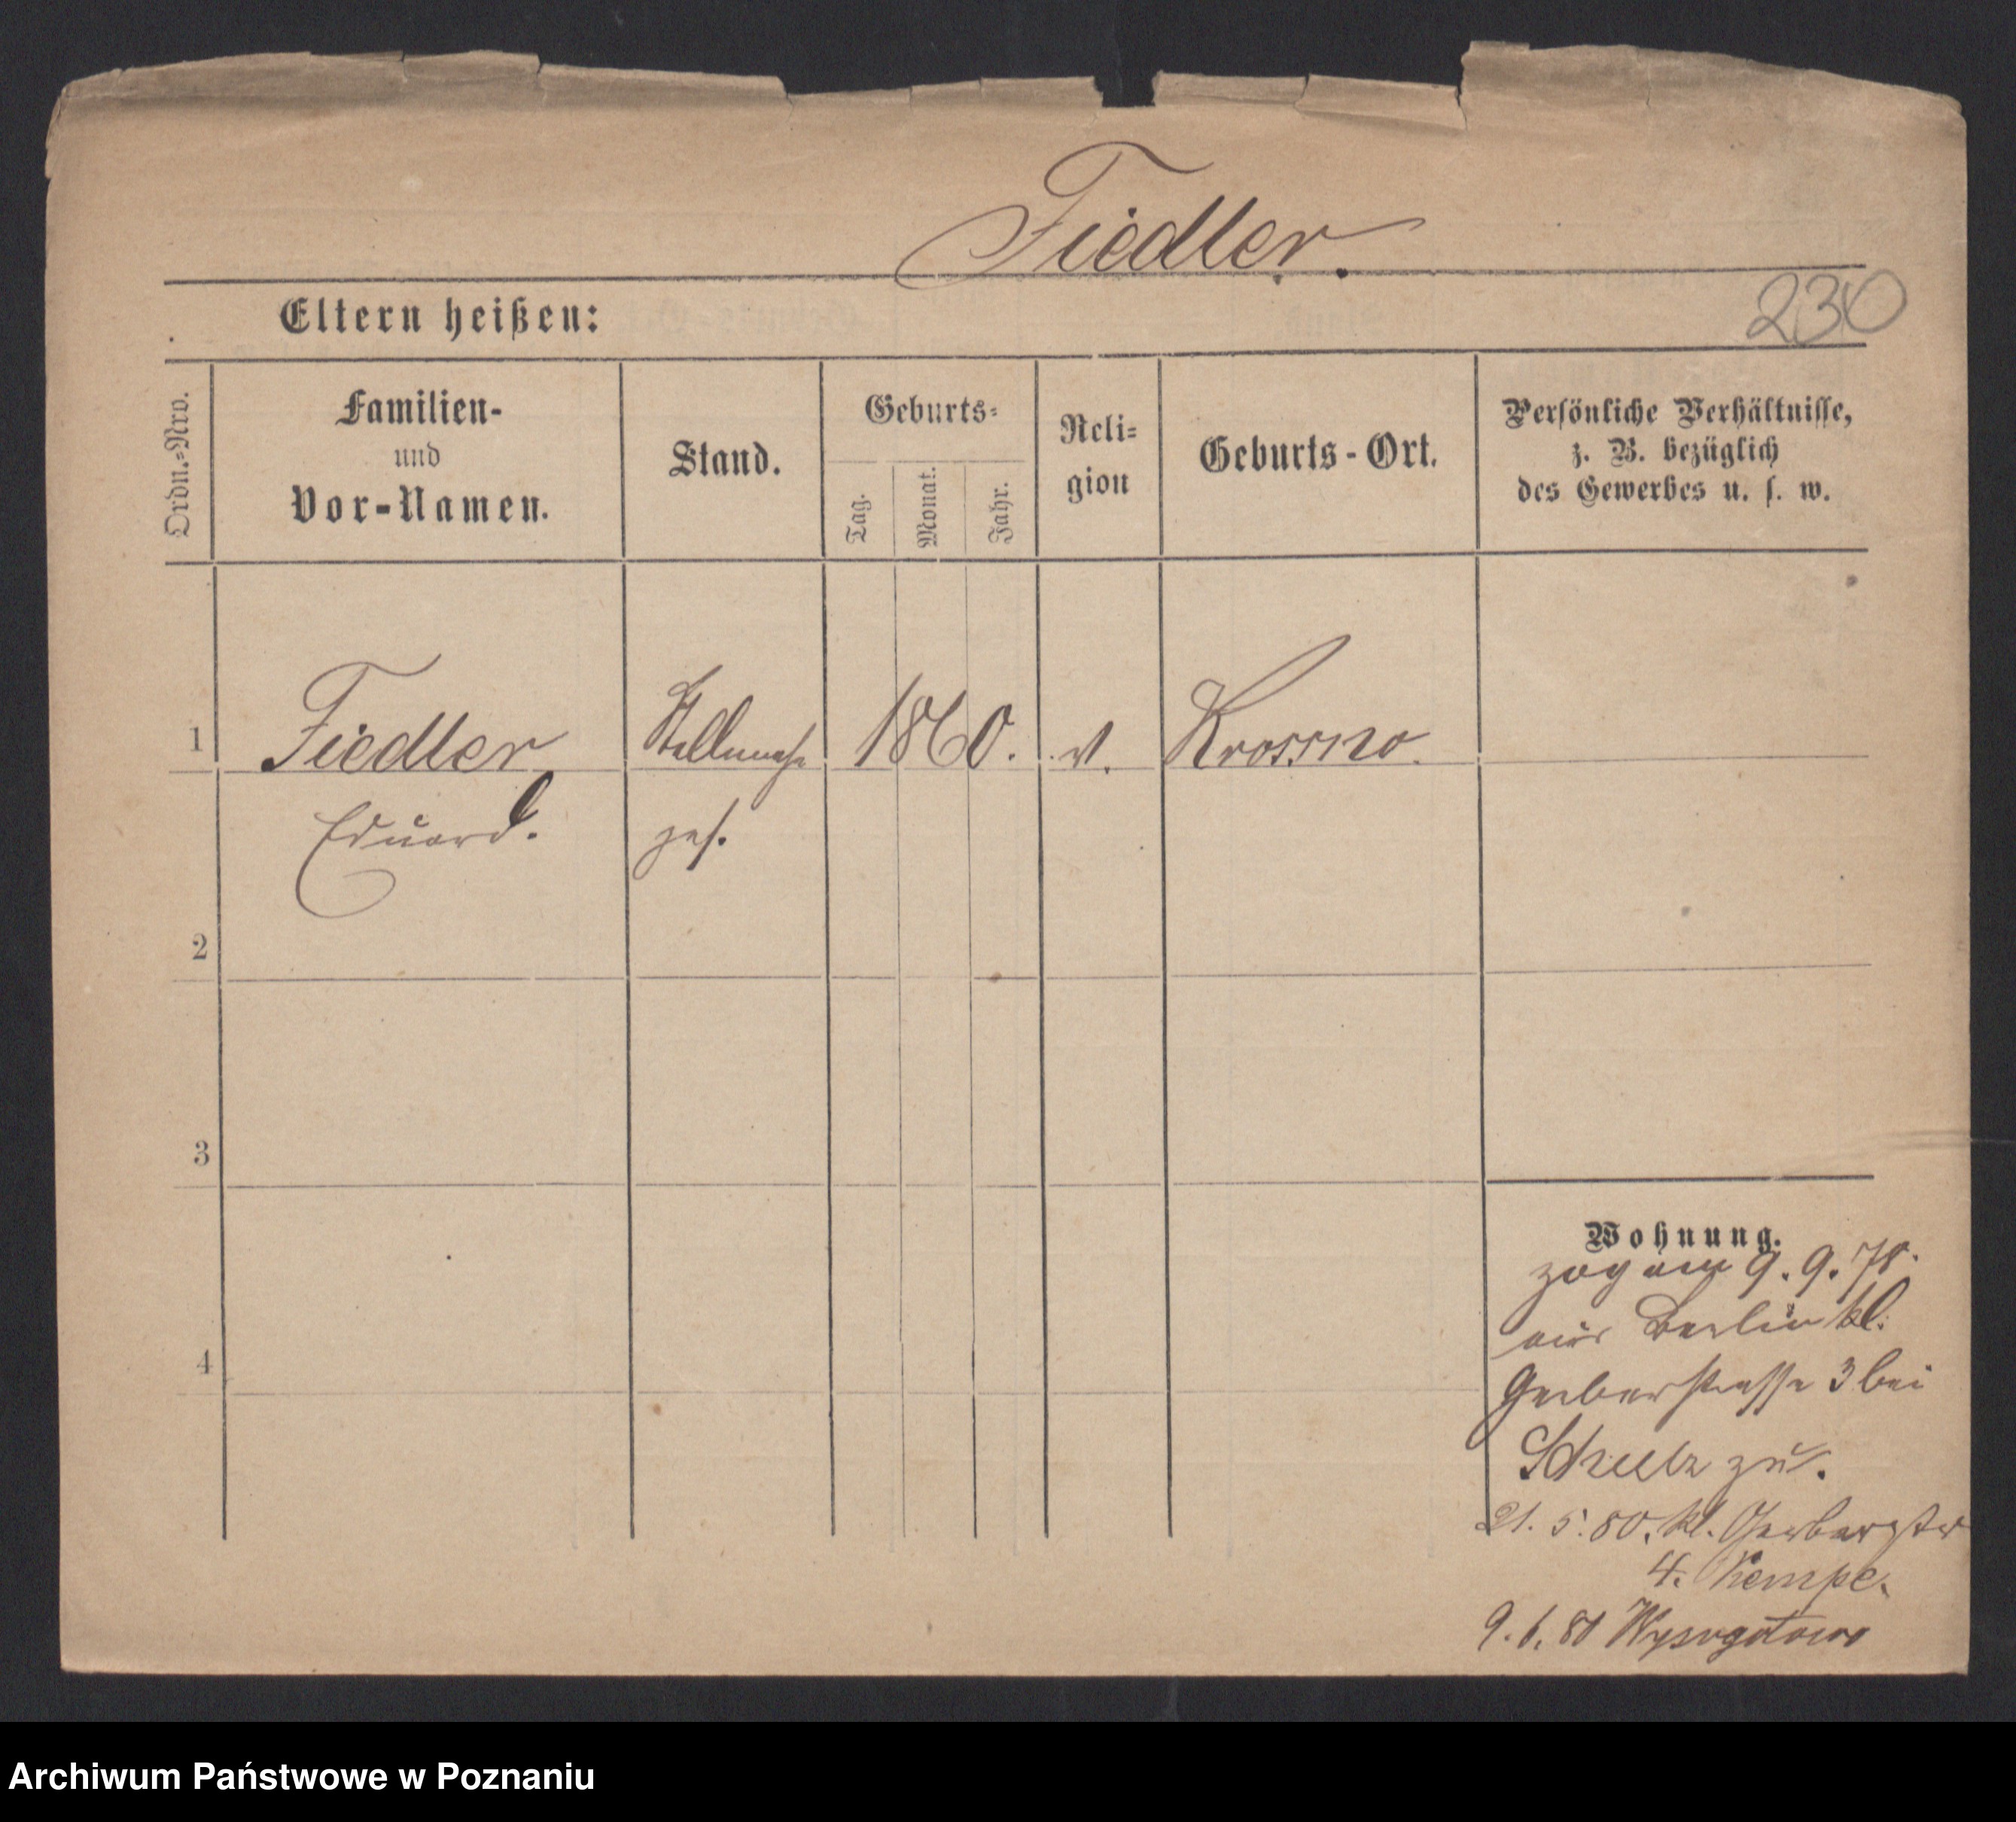 Fiedler.
230
Eltern heißen:
Ordn.-Nro.
Familien-
und
Vor-Namen.
Stand.
Geburts-
Tag.
Monat.
Jahr.
Reli-
gion
Geburts-Ort.
Persönliche Verhältnisse,
z. B. bezüglich
des Gewerbes u. s. w.
1 Fiedler 1860. Krossno.
Eduard. ges.
2
3
4
Wohnung.
zog am 9. 9. 78.
aus Berlin kl.
Gerberstrasse 3 bei
Schulz zu.
21. 5. 80. kl. Gerberstr
4. Kempe.
9. 6. 80 Wysogotowo
Archiwum Państwowe w Poznaniu